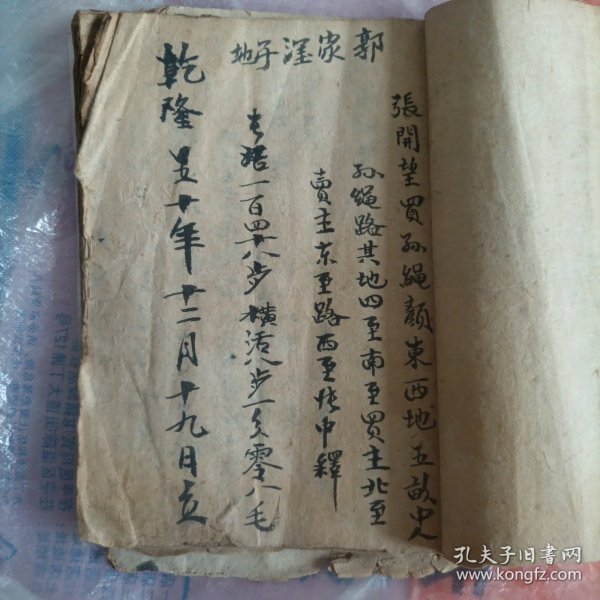 郭家滛子地
張開望買孫繩顏東西地五畝中人
孫繩路其地四至南至買主北至
賣主東至路西至張中釋
長活一百四十八步横活八步一尺零八毛
乾隆五十年十二月十九日立
孔夫子旧书网
www.kongfz.com